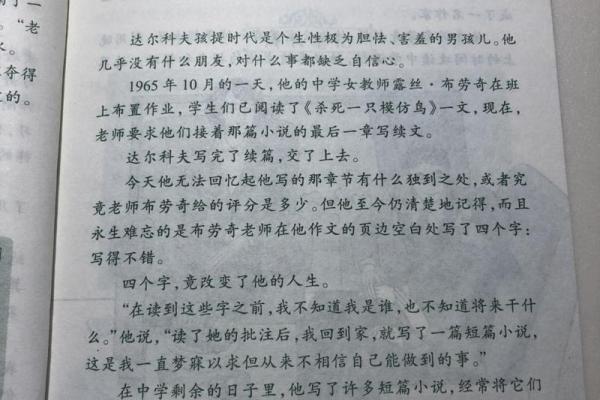 了一
"老
水。
夺得
的。
达尔科夫孩提时代是个生性极为胆怯、害羞的男孩儿。他
几乎没有什么朋友,对什么事都缺乏自信心。
1965年10月的一天,他的中学女教师露丝·布劳奇在班
上布置作业,学生们已阅读了《杀死一只模仿鸟》一文,现在,
老师要求他们接着那篇小说的最后一章写续文。
达尔科夫写完了续篇,交了上去。
今天他无法回忆起他写的那章节有什么独到之处,或者究
竟老师布劳奇给的评分是多少。但他至今仍清楚地记得,而且
永生难忘的是布劳奇老师在他作文的页边空白处写了四个字:
写得不错。
四个字,竟改变了他的人生。
“在读到这些字之前,我不知道我是谁,也不知道将来干什
么。”他说,“读了她的批注后,我回到家,就写了一篇短篇小说,
这是我一直梦寐以求但从来不相信自己能做到的事。”
在中学剩余的日子里,他写了许多短篇小说,经常将它们